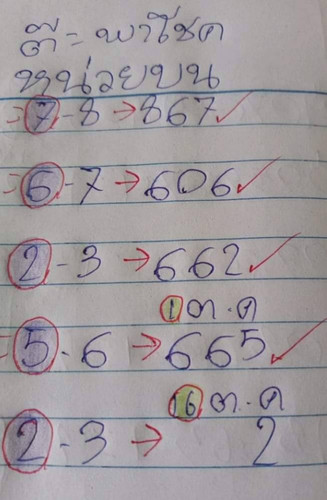 ตี = พาโชค
หน่วยบน
= 7 - 8 → 867 ✓
= 6 - 7 → 606 ✓
2 - 3 → 662 ✓
1 ต.ค
= 5 - 6 → 665 ✓
16 ต.ค
2 - 3 → 2